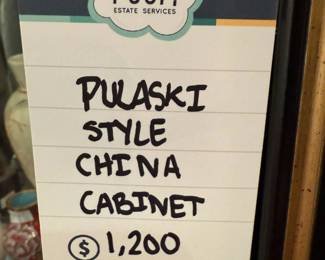 ESTATE SERVICES
PULASKI
STYLE
CHINA
CABINET
$ 1,200